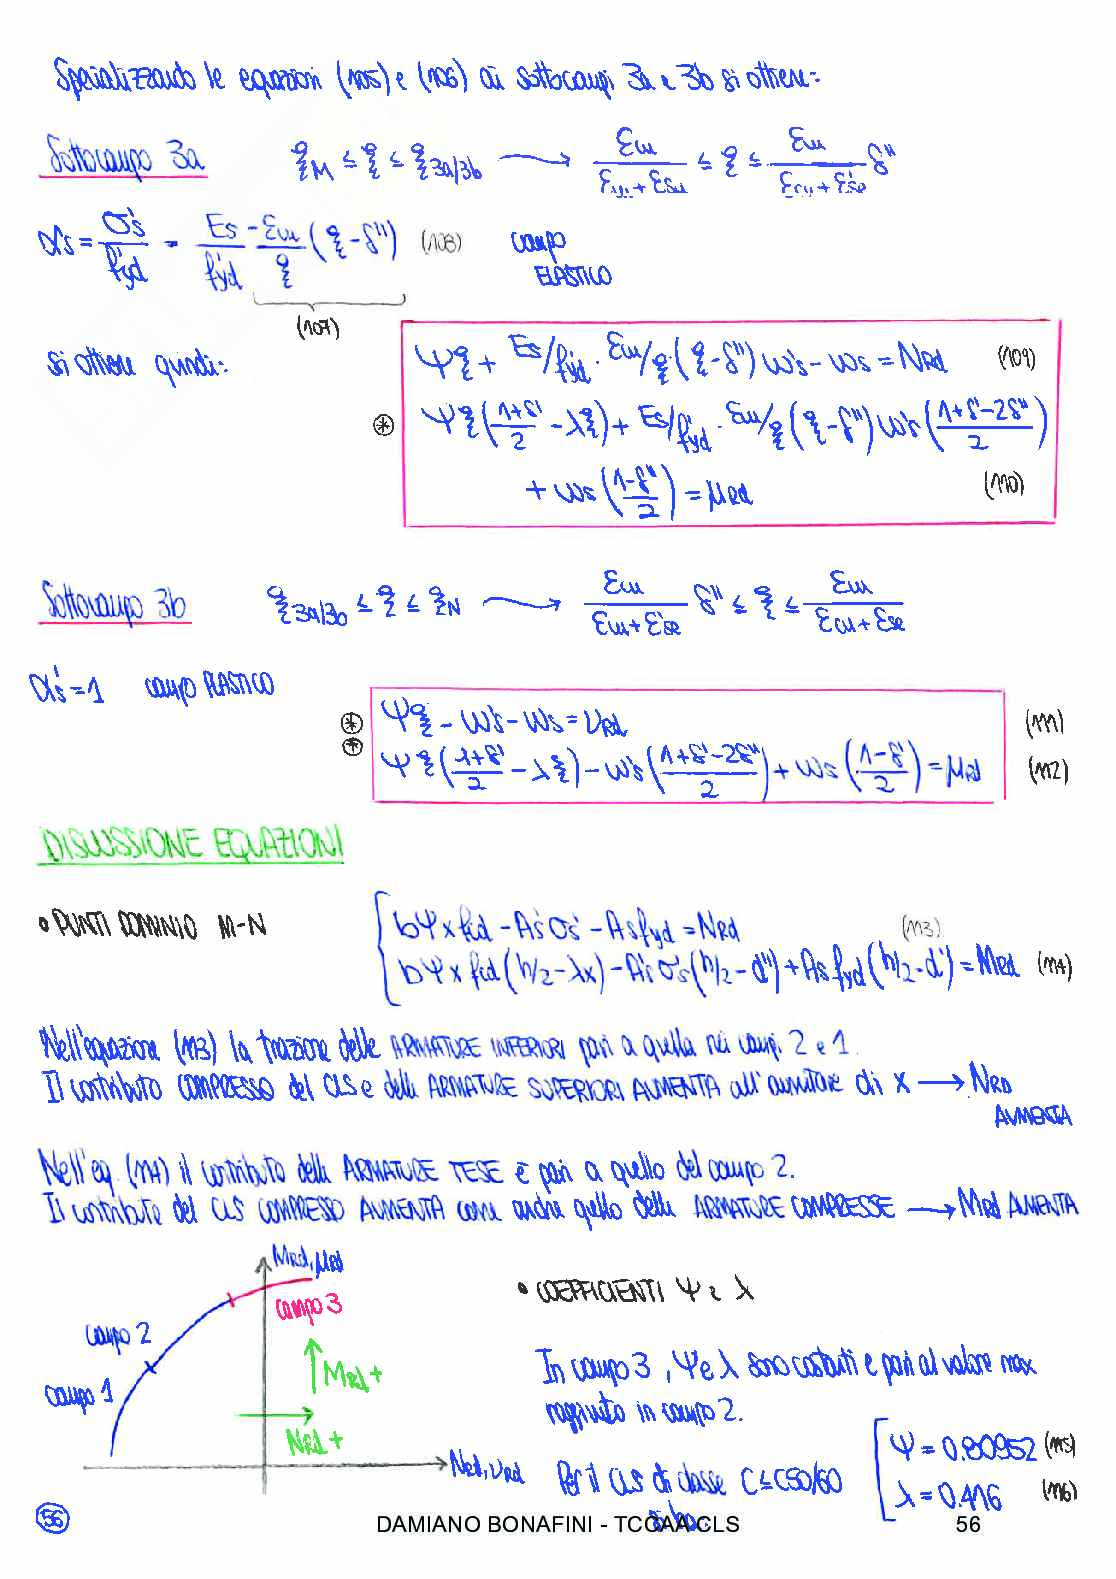 Specializzando le equazioni (105) e (106) ai sottocampi 3a e 3b si ottiene:
Sottocampo 3a ξM ≤ ξ ≤ ξ3a/3b → εcu/(εcu + εsu) ≤ ξ ≤ εcu/(εcu + ε's e) δ''
α's = σ's/f'yd = Es/f'yd · -εcu/ξ (ξ - δ'') (108) campo ELASTICO
(107)
si ottiene quindi:
ψξ + Es/f'yd · εcu/ξ (ξ - δ'') ω's - ωs = NRd (109)
⊛ ψξ ((1+δ')/2 - λξ) + Es/f'yd · εcu/ξ (ξ - δ'') ω's ((1+δ'-2δ'')/2)
+ ωs ((1-δ'')/2) = μRd (110)
Sottocampo 3b ξ3a/3b ≤ ξ ≤ ξN → εcu/(εcu + ε'se) δ'' ≤ ξ ≤ εcu/(εcu + εse)
α's = 1 campo PLASTICO
⊛ ψξ - ω's - ωs = νRd (111)
⊛ ψξ ((1+δ')/2 - λξ) - ω's ((1+δ'-2δ'')/2) + ωs ((1-δ')/2) = μRd (112)
DISCUSSIONE EQUAZIONI
• PUNTI DOMINIO M-N
bψx fcd - A's σ's - As fyd = NRd (113)
bψx fcd (h/2 - λx) - A's σ's (h/2 - d'') + As fyd (h/2 - d') = MRd (114)
Nell'equazione (113) la trazione delle ARMATURE INFERIORI pari a quella nei campi 2 e 1.
Il contributo COMPRESSO del CLS e delle ARMATURE SUPERIORI AUMENTA all'aumentare di x → NRD
AUMENTA
Nell'eq. (114) il contributo delle ARMATURE TESE è pari a quello del campo 2.
Il contributo del CLS COMPRESSO AUMENTA come anche quello delle ARMATURE COMPRESSE → MRd AUMENTA
MRd, μRd
campo 3
campo 2
campo 1
MRd +
NRd +
NRd, νRd
• COEFFICIENTI ψ e λ
In campo 3, ψ e λ sono costanti e pari al valore max
raggiunto in campo 2.
Per il CLS di classe C≤C50/60
si ha:
ψ = 0.80952 (115)
λ = 0.416 (116)
56
DAMIANO BONAFINI - TCCAA CLS
56